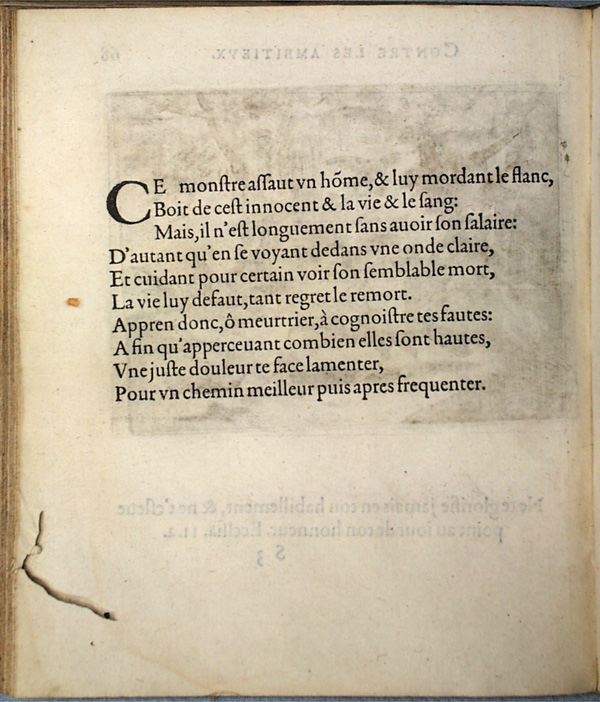 CE monſtre aſſaut vn hõme, & luy mordant le flanc,
Boit de ceſt innocent & la vie & le ſang:
Mais, il n'eſt longuement ſans auoir ſon ſalaire:
D'autant qu'en ſe voyant dedans vne onde claire,
Et cuidant pour certain voir ſon ſemblable mort,
La vie luy defaut, tant regret le remort.
Appren donc, ô meurtrier, à cognoiſtre tes fautes:
A fin qu'apperceuant combien elles ſont hautes,
Vne juſte douleur te face lamenter,
Pour vn chemin meilleur puis apres frequenter.